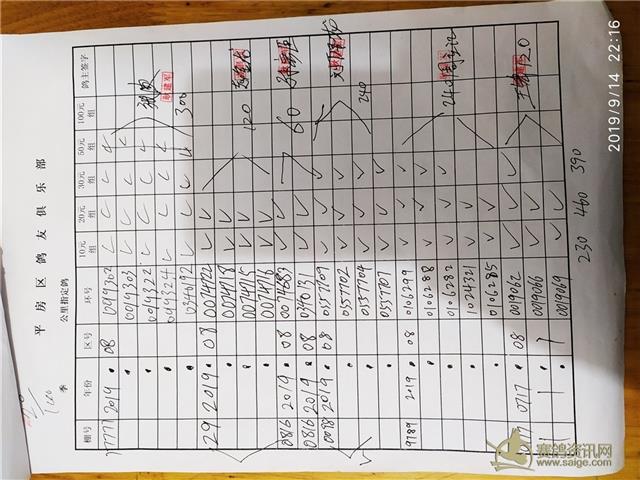 平房区鸽友俱乐部
季 公里指定鸽
棚号 年份 区号 环号 10元组 20元组 30元组 50元组 100元组 鸽主签字
77777 2019 08 0019302
0019303
0019322
0019324
0346192 300
129 2019 08 0074722
0074718
0074715 120
0074716
0816 2019 08 0074683 60
0816 2019 08 0340131
10098 2019 08 0357709
0357702
0357704 240
0357707
9789 2019 08 0106299
0106288
0106282 240
1024321
0106285
0717 08 0019062
0019066
0019069
230 460 390
2019/9/14 22:16
赛鸽资讯网
www.saige.com